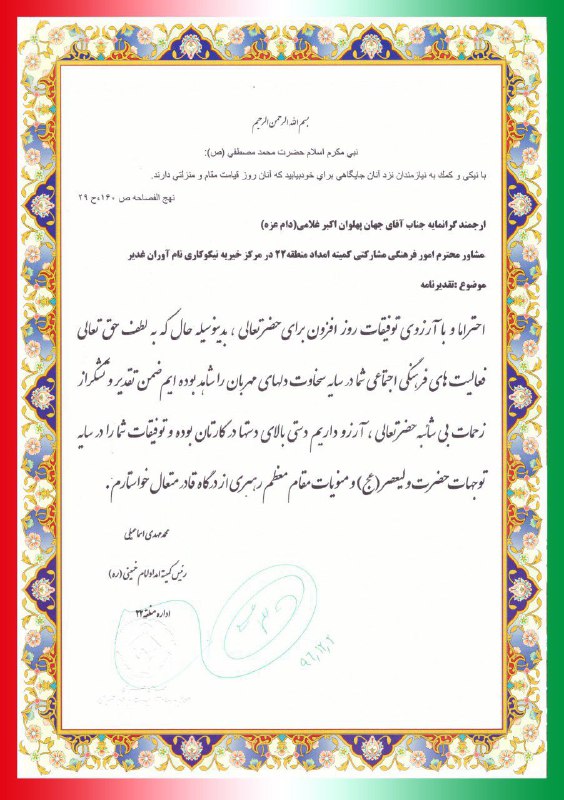 بسم الله الرحمن الرحیم
نبي مكرم اسلام حضرت محمد مصطفي (ص):
با نيكي و كمك به نيازمندان نزد آنان جايگاهي براي خودبيابيد كه آنان روز قيامت مقام و منزلتي دارند.
نهج الفصاحه ص ۱۶۰،ح ۲۹
ارجمند گرانمایه جناب آقای جهان پهلوان اکبر غلامی(دام عزه)
مشاور محترم امور فرهنگی مشارکتی کمیته امداد منطقه۲۲ در مرکز خیریه نیکوکاری نام آوران غدیر
موضوع :تقدیرنامه
احتراما و با آرزوی توفیقات روز افزون برای حضرتعالی ، بدینوسیله حال که به لطف حق تعالی
فعالیت های فرهنگی اجتماعی شما در سایه سخاوت دلهای مهربان را شاهد بوده ایم ضمن تقدیر و تشکر از
زحمات بی شائبه حضرتعالی ، آرزو داریم دستی بالای دستها در کارتان بوده و توفیقات شما را در سایه
توجهات حضرت ولیعصر(عج) و منویات مقام معظم رهبری از درگاه قادر متعال خواستارم .
محمد مهدی اسماعیلی
رئیس کمیته امداد امام خمینی (ره)
اداره منطقه ۲۲